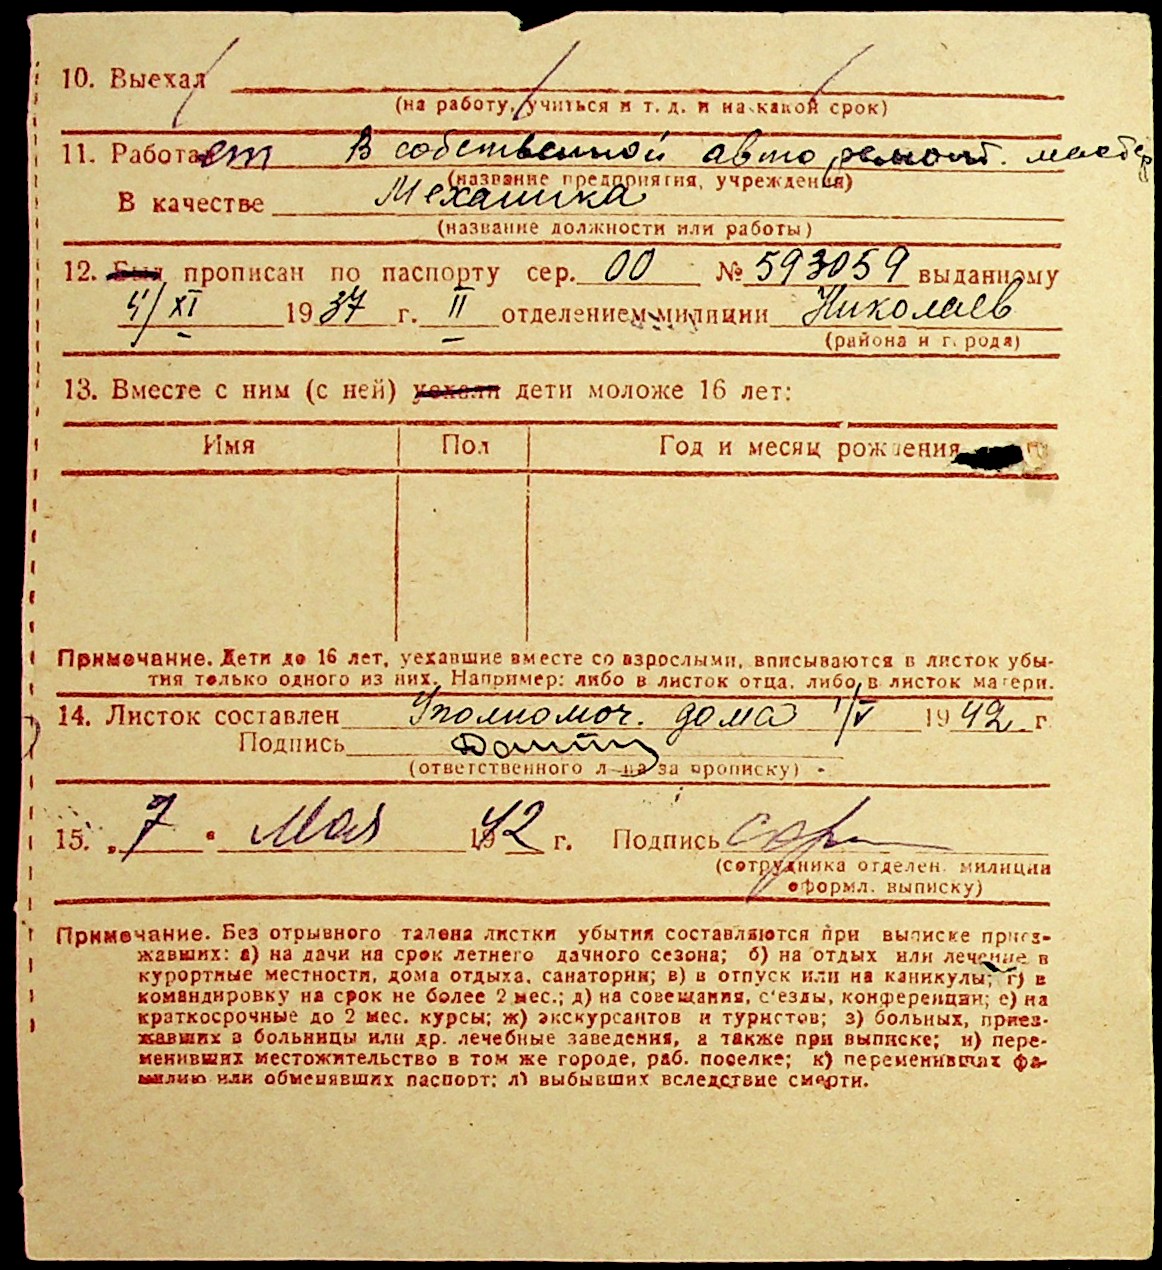 10. Выехал
(на работу, учиться и т. д. и на какой срок)
11. Работает В собственной авто ремонт. мастер
(название предприятия, учреждения)
В качестве Механика
(название должности или работы)
12. Был прописан по паспорту сер. 00 № 593059 выданному
4/XI 1937 г. II отделением милиции Николаев
(района и города)
13. Вместе с ним (с ней) уехали дети моложе 16 лет:
Имя Пол Год и месяц рождения
Примечание. Дети до 16 лет, уехавшие вместе со взрослыми, вписываются в листок убы-
тия только одного из них. Например: либо в листок отца, либо в листок матери.
14. Листок составлен Уполномоч. дома 1/V 1942 г
Подпись
(ответственного л-ца за прописку)
15. „7" Мая 1942 г. Подпись
(сотрудника отделен. милиции
оформл. выписку)
Примечание. Без отрывного талона листки убытия составляются при выписке приез-
жавших: а) на дачи на срок летнего дачного сезона; б) на отдых или лечение в
курортные местности, дома отдыха, санатории; в) в отпуск или на каникулы; г) в
командировку на срок не более 2 мес.; д) на совещания, с'езды, конференции; е) на
краткосрочные до 2 мес. курсы; ж) экскурсантов и туристов; з) больных, приез-
жавших в больницы или др. лечебные заведения, а также при выписке; и) пере-
менивших местожительство в том же городе, раб. поселке; к) переменивших фа-
милию или обменявших паспорт; л) выбывших вследствие смерти.